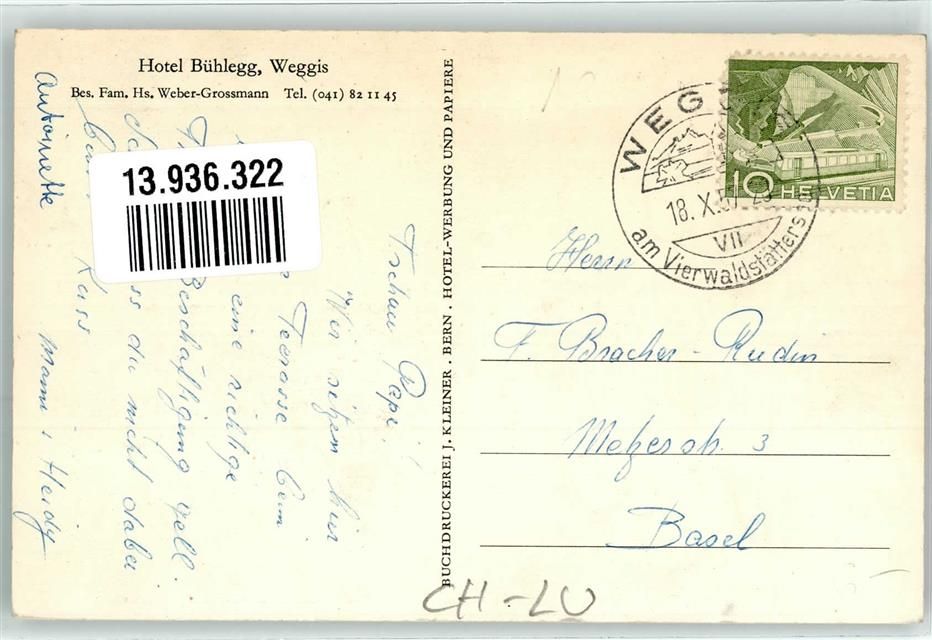 Hotel Bühlegg, Weggis
Bes. Fam. Hs. Weber-Grossmann Tel. (041) 82 11 45
13.936.322
Tschau Papi!
Wir sitzen hier
Terrasse beim
eine richtige
Beschäftigung gell.
dass du nicht dabei
Kuss mami & Heidy
Antoinette
BUCHDRUCKEREI J. KLEINER . BERN . HOTEL-WERBUNG UND PAPIERE
WEGGIS
18. X. 57
VII
am Vierwaldstättersee
10 HELVETIA
Herrn
F. Bracher-Rudin
Metzerstr. 3
Basel
CH-LU